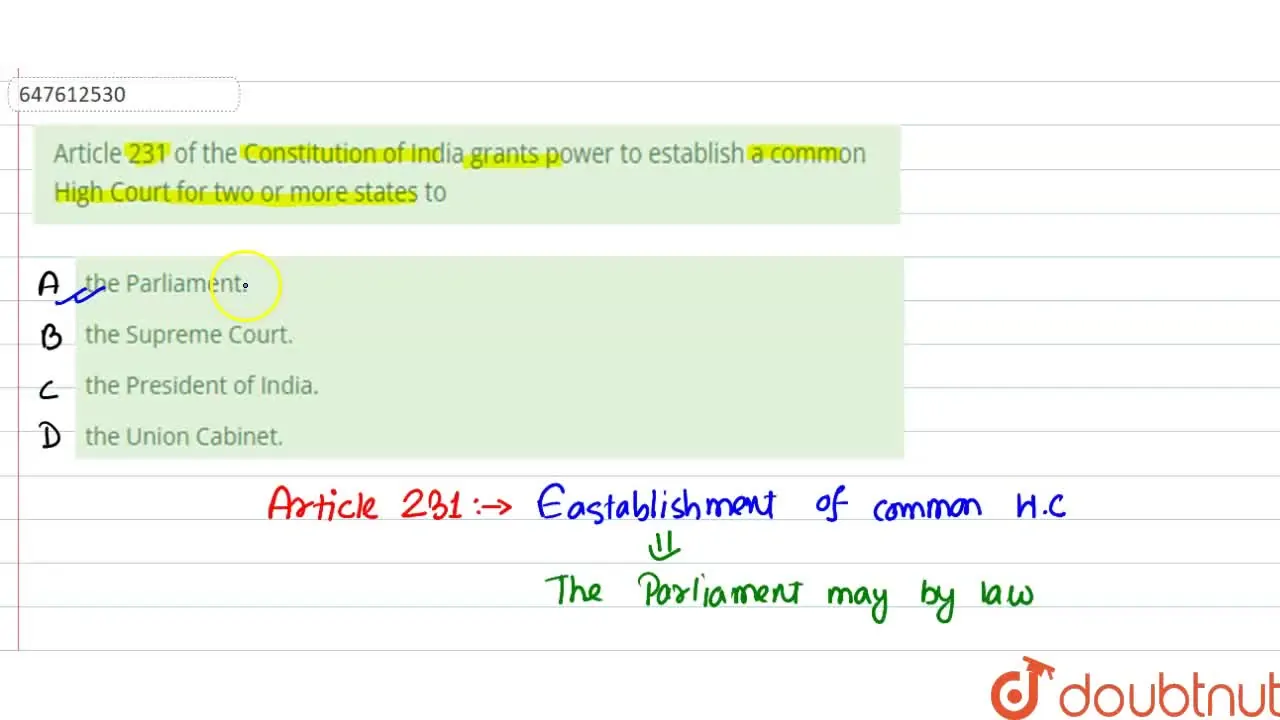 647612530
Article 231 of the Constitution of India grants power to establish a common
High Court for two or more states to
A the Parliament.
B the Supreme Court.
C the President of India.
D the Union Cabinet.
Article 231 :→ Eastablishment of common H.C
⇓
The Parliament may by law
doubtnut